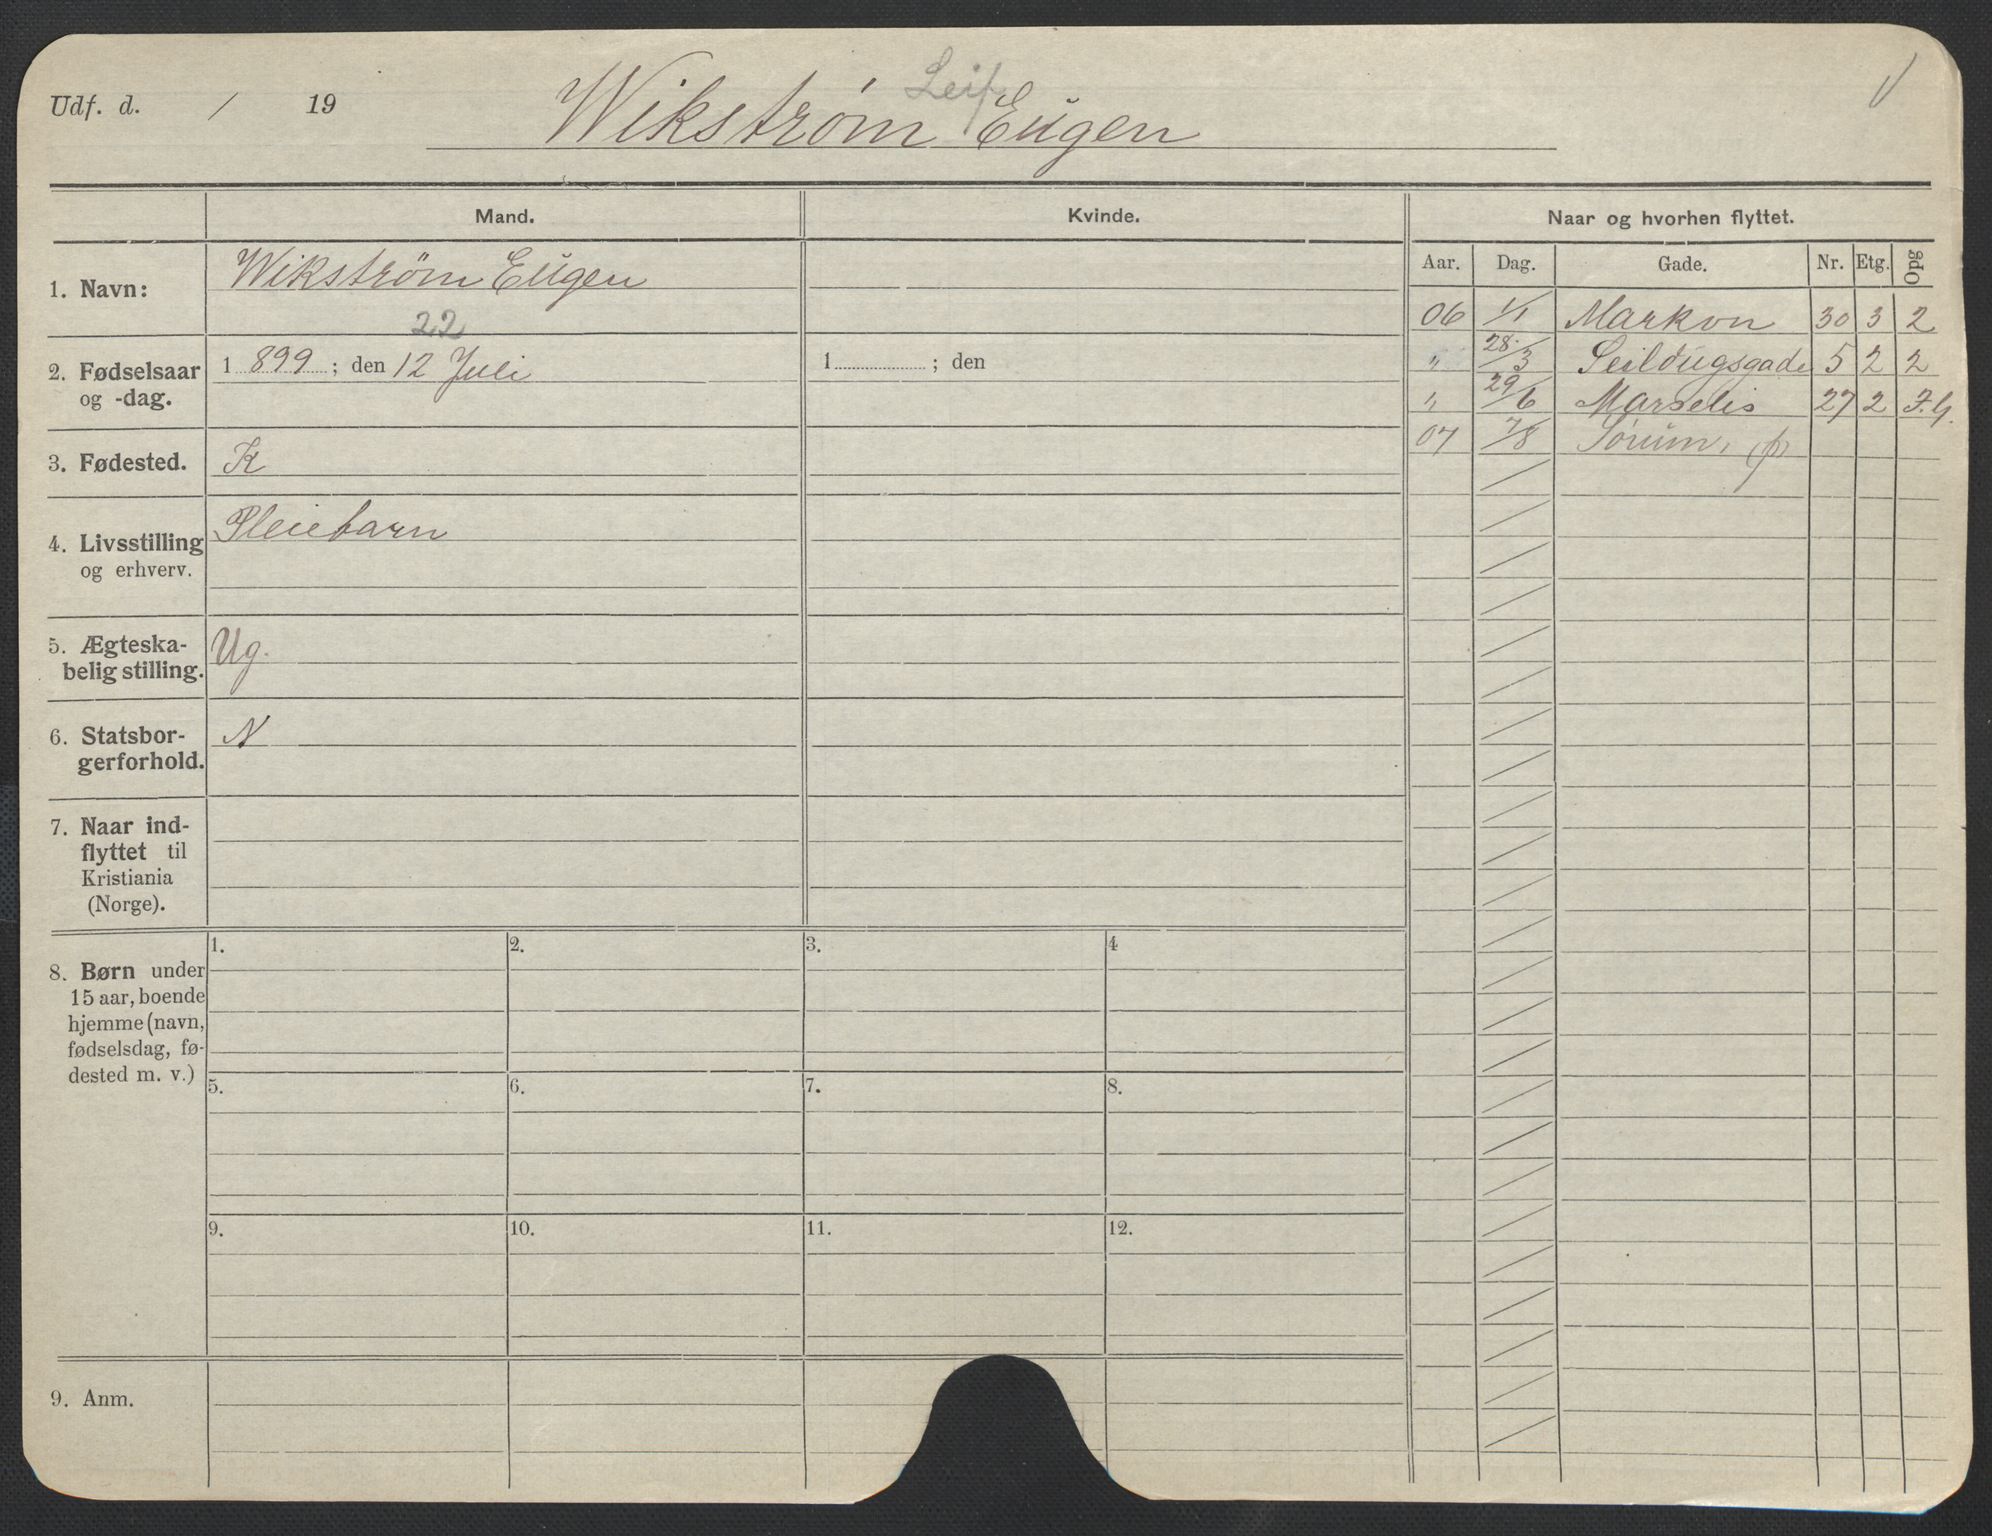 Udf. d. / 19
Leif
Wikstrøm Eugen
Mand. Kvinde. Naar og hvorhen flyttet.
Aar. Dag. Gade. Nr. Etg. Opg
1. Navn: Wikstrøm Eugen
22
2. Fødselsaar og -dag. 1 899 ; den 12 Juli 1 ; den
3. Fødested. K
4. Livsstilling og erhverv. Pleiebarn
5. Ægteska-
belig stilling. Ug.
6. Statsbor-
gerforhold. N
7. Naar ind-
flyttet til
Kristiania
(Norge).
8. Børn under
15 aar, boende
hjemme (navn,
fødselsdag, fø-
dested m. v.)
1. 2. 3. 4
5. 6. 7. 8.
9. 10. 11. 12.
9. Anm.
06 1/1 Markvn 30 3 2
" 28/3 Seildugsgade 5 2 2
" 29/6 Marselis 27 2 F.G.
07 7/8 Sørum, (p)